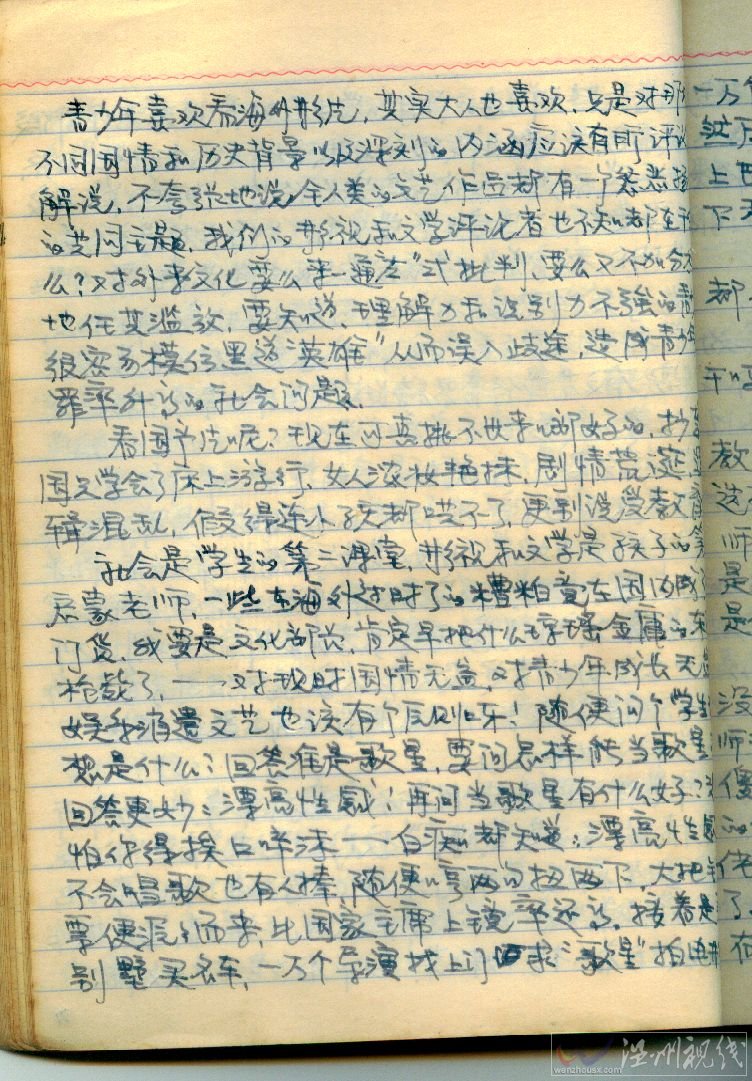 青少年喜欢看海外影片，其实大人也喜欢，只是对那
不同国情和历史背景以及深刻的内涵应该有所评论
解说，不夸张地说，全人类的文艺作品都有一个惩恶
的共同主题，我们的影视和文学评论者也不知都在
么？对外来文化要么来一通"左"式批判，要么又不加
地任其滥放，要知道，理解力和识别力不强的青
很容易模仿黑道"英雄"从而误入歧途，造成青少年
罪率升高的社会问题。
看国产片呢？现在可真挑不出来哪部好的，抄
国又学会了床上游行，女人浓妆艳抹，剧情荒诞
辑混乱，假得连小孩都哄不了，更别说受教
社会是学生的第二课堂，影视和文学是孩子的
启蒙老师，一些在海外过时了的糟粕竟在国内成了
门货，我要是文化部长，肯定早把什么琼瑶金庸的
枪毙了，——对现时国情无益，对青少年成长无益
娱乐消遣文艺也该有个原则归宗！随便问个学生
想是什么？回答准是歌星，要问怎样能当歌星
回答更妙：漂亮性感！再问当歌星有什么好？
怕你得挨口唾沫——白痴都知道：漂亮性感
不会唱歌也有人捧，随便哼两句扭两下，大把
票便滚滚而来，比国家主席上镜率还高，接着是
别墅买名车，一万个导演找上门求"歌星"拍电影
一万
然
上
下
都
和
教
选
师
是
是
没
师
傻
的
佬
了
有
温州视线
wenzhousx.com